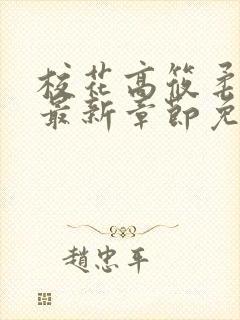 校花高筱柔
最新章节免
趙忠平